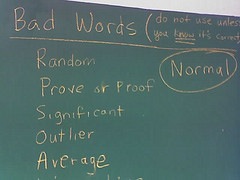 Bad Words (do not use unless
you know it's correct
Random
Normal
Prove or Proof
Significant
Outlier
Average